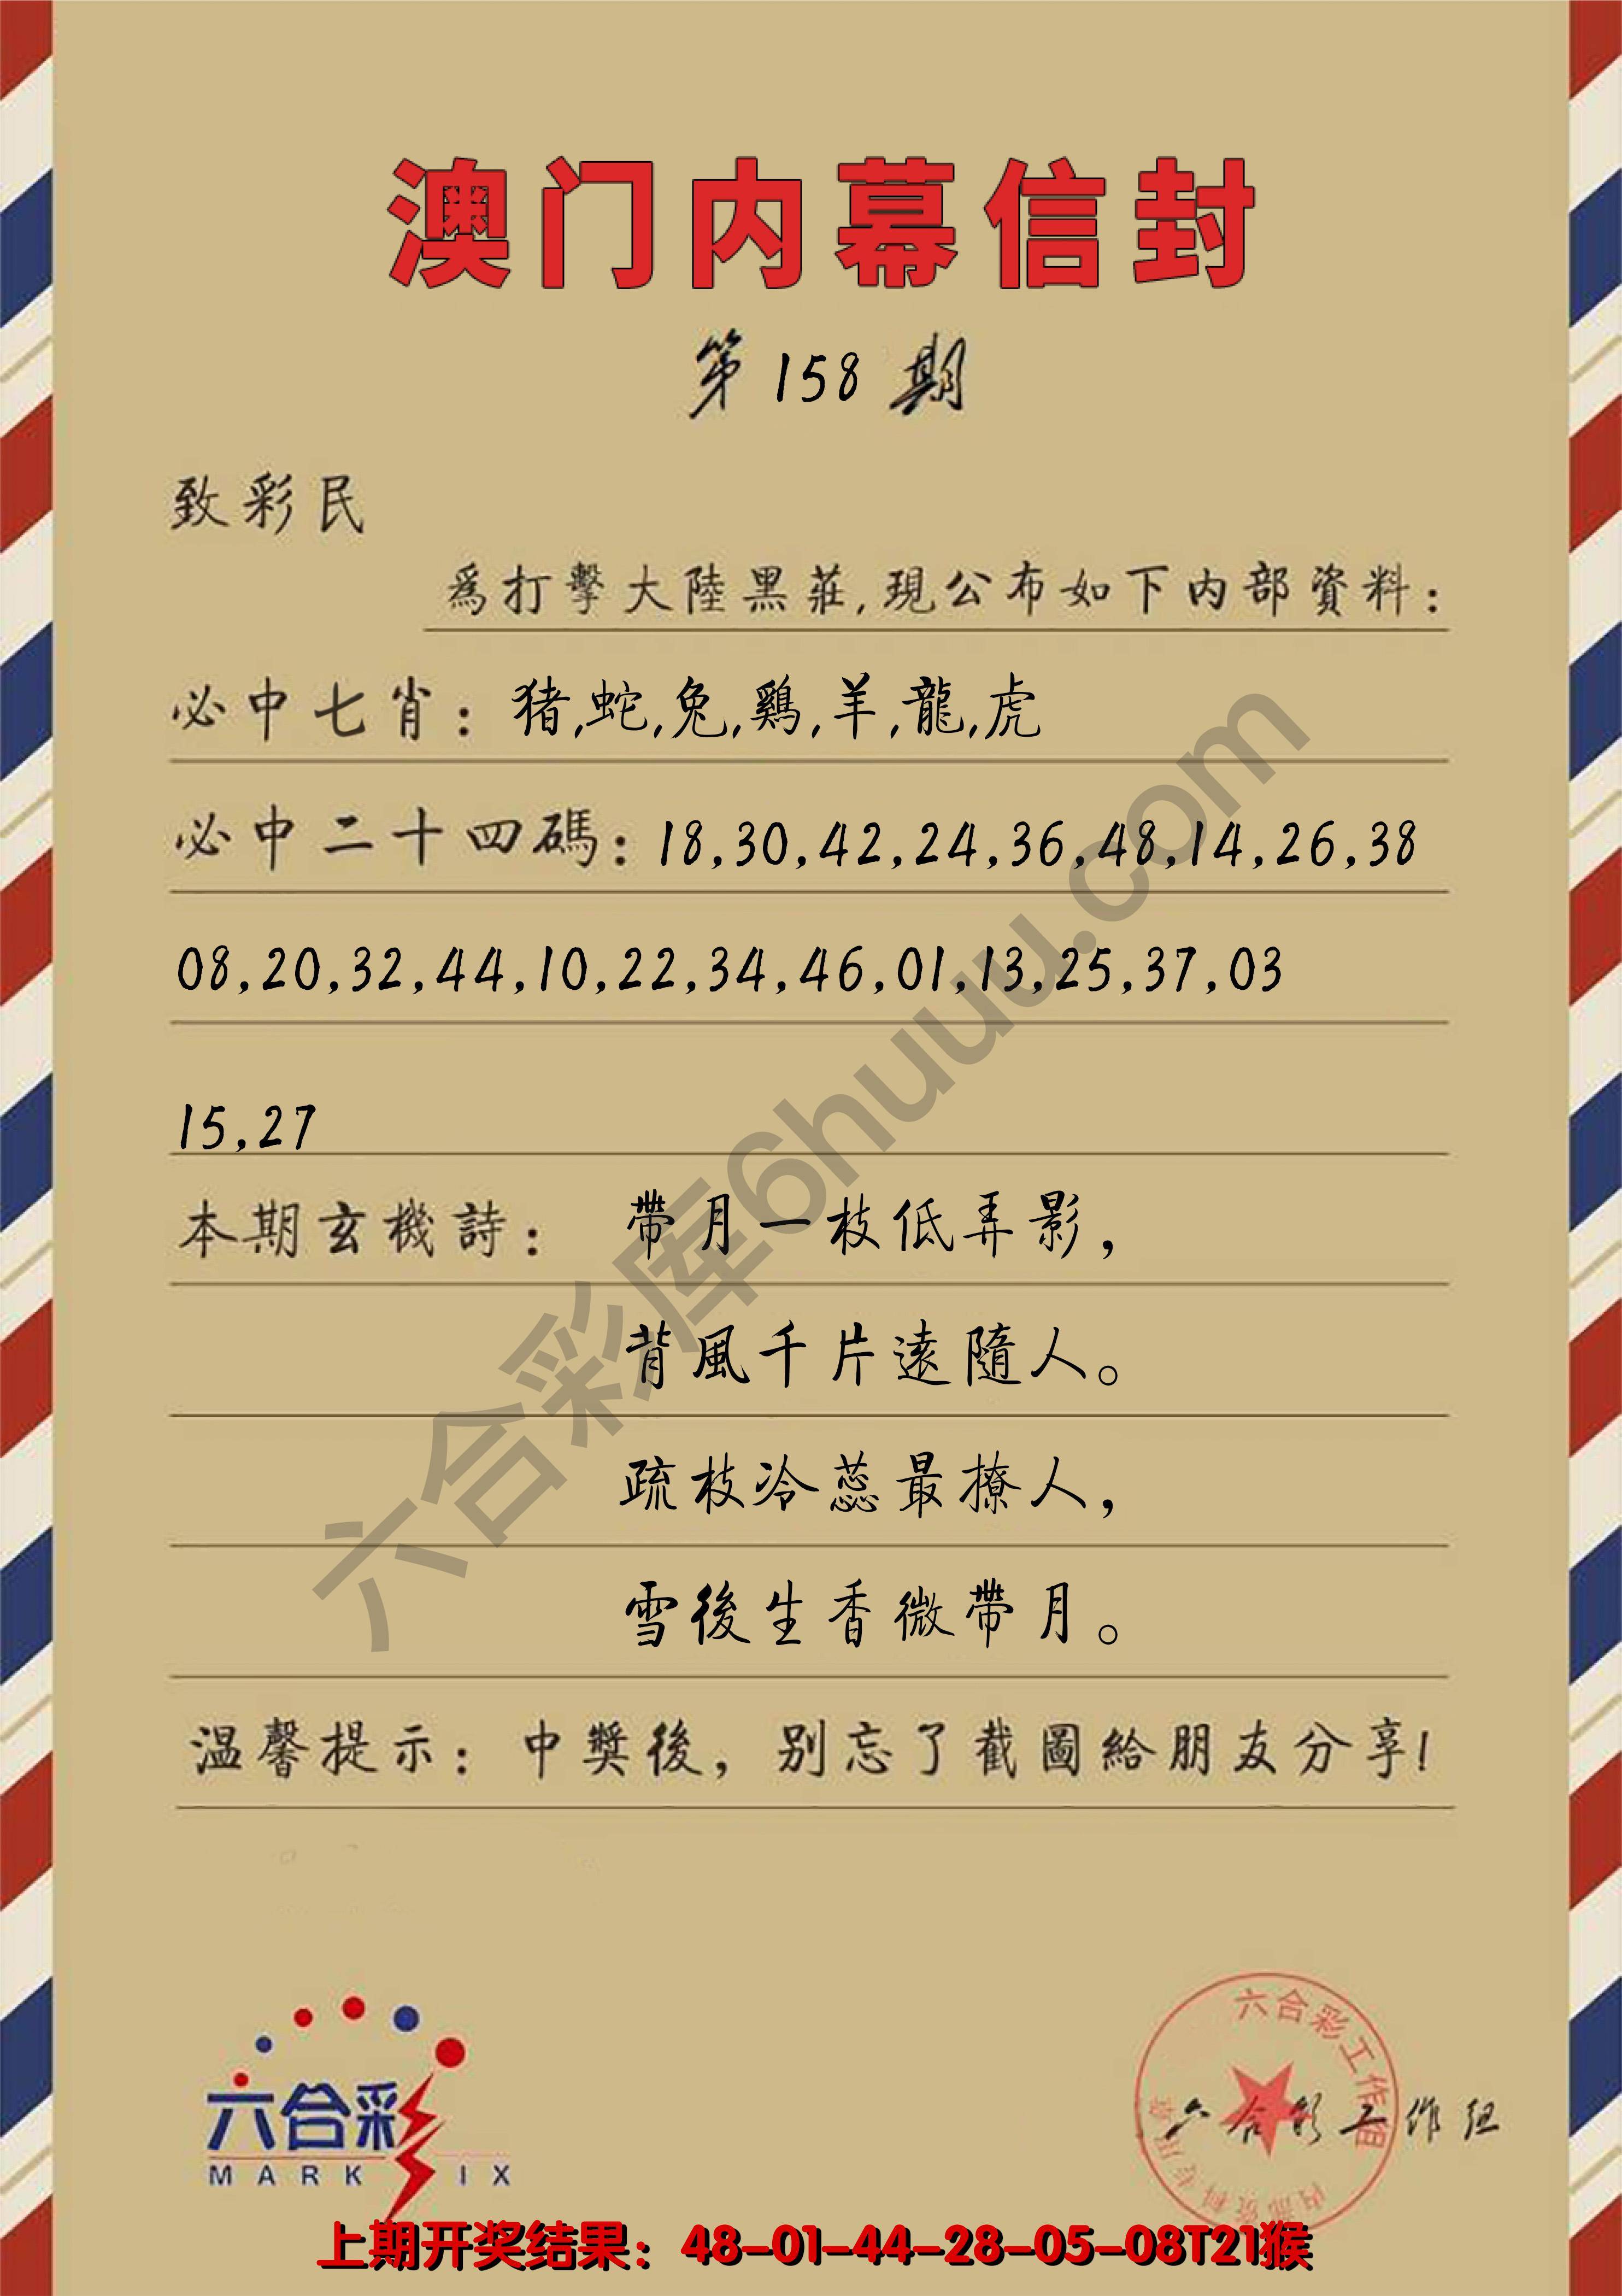 澳门内幕信封
第 158 期
致彩民
爲打擊大陸黑莊,現公布如下内部資料：
必中七肖：猪,蛇,兔,鷄,羊,龍,虎
必中二十四碼：18,30,42,24,36,48,14,26,38
08,20,32,44,10,22,34,46,01,13,25,37,03
15,27
本期玄機詩： 帶月一枝低弄影，
背風千片遠隨人。
疏枝冷蕊最撩人，
雪後生香微帶月。
温馨提示：中獎後，别忘了截圖給朋友分享!
六合彩库6huuu.com
六合彩
MARK SIX
六合彩工作组
内部资料专用章
六合彩工作组
上期开奖结果：48-01-44-28-05-08T21猴